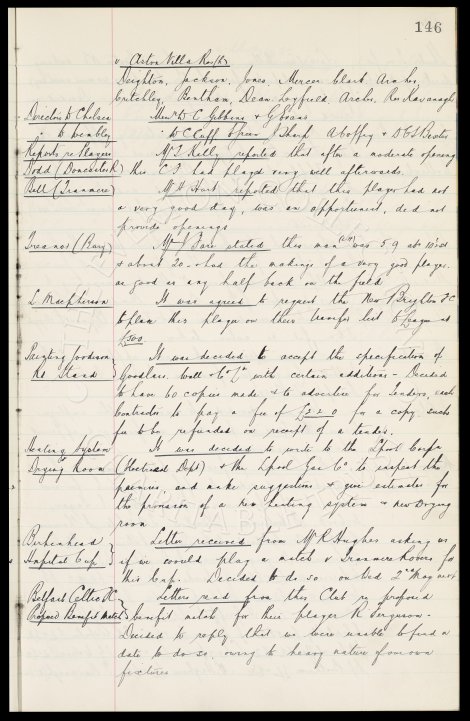 146
v. Aston Villa Res (h)
Deighton, Jackson, Jones, Mercer, Clark, Archer,
Critchley, Bentham, Dean, Loyfield, Archer, Res Kavanagh
Director to Chelsea Messrs W C Gibbins & G Evans
" to Wembley W C Cuff, Green, J Sharp, A Coffey & D C S Baxter
Reports re Players Mr T Kelly reported that after a moderate opening
Dodd (Doncaster R) this C.F. had played very well afterwards.
Bell (Tranmere) Mr H Hart reported that this player had not
a very good day, was an opportunist, did not
provide openings
(Bury) Mr stated this man was 5.9 abt
& about 20 & had the makings of a very good player.
as good as any half back on the field
L. Macpherson It was agreed to request the New Brighton FC
to place this player on their transfer list to League at
£500
Painting Goodison It was decided to accept the specification of
Rd Stand Goodlass Wall & Co Ltd with certain additions - Decided
to have 60 copies made & to advertise for Tenders, each
contractor to pay a fee of £2 2 0 for a copy such
fee to be refunded on receipt of a tender.
Heating System It was decided to write to the Lpool Corpn
Drying Room (Electrical Dept) & the Lpool Gas Co to inspect the
premises, and make suggestions & give estimates for
the provision of a new heating system & new Drying
room
Birkenhead Letter received from Mr R Hughes asking us
Hospital Cup if we would play a match v Tranmere Rovers for
this Cup. Decided to do so on Wed 2nd May next
Belfast Celtic FC Letters read from this Club re proposed
Proposed Benefit match benefit match for their player R Ferguson.
Decided to reply that we were unable to find a
date to do so, owing to heavy nature of our own
fixtures